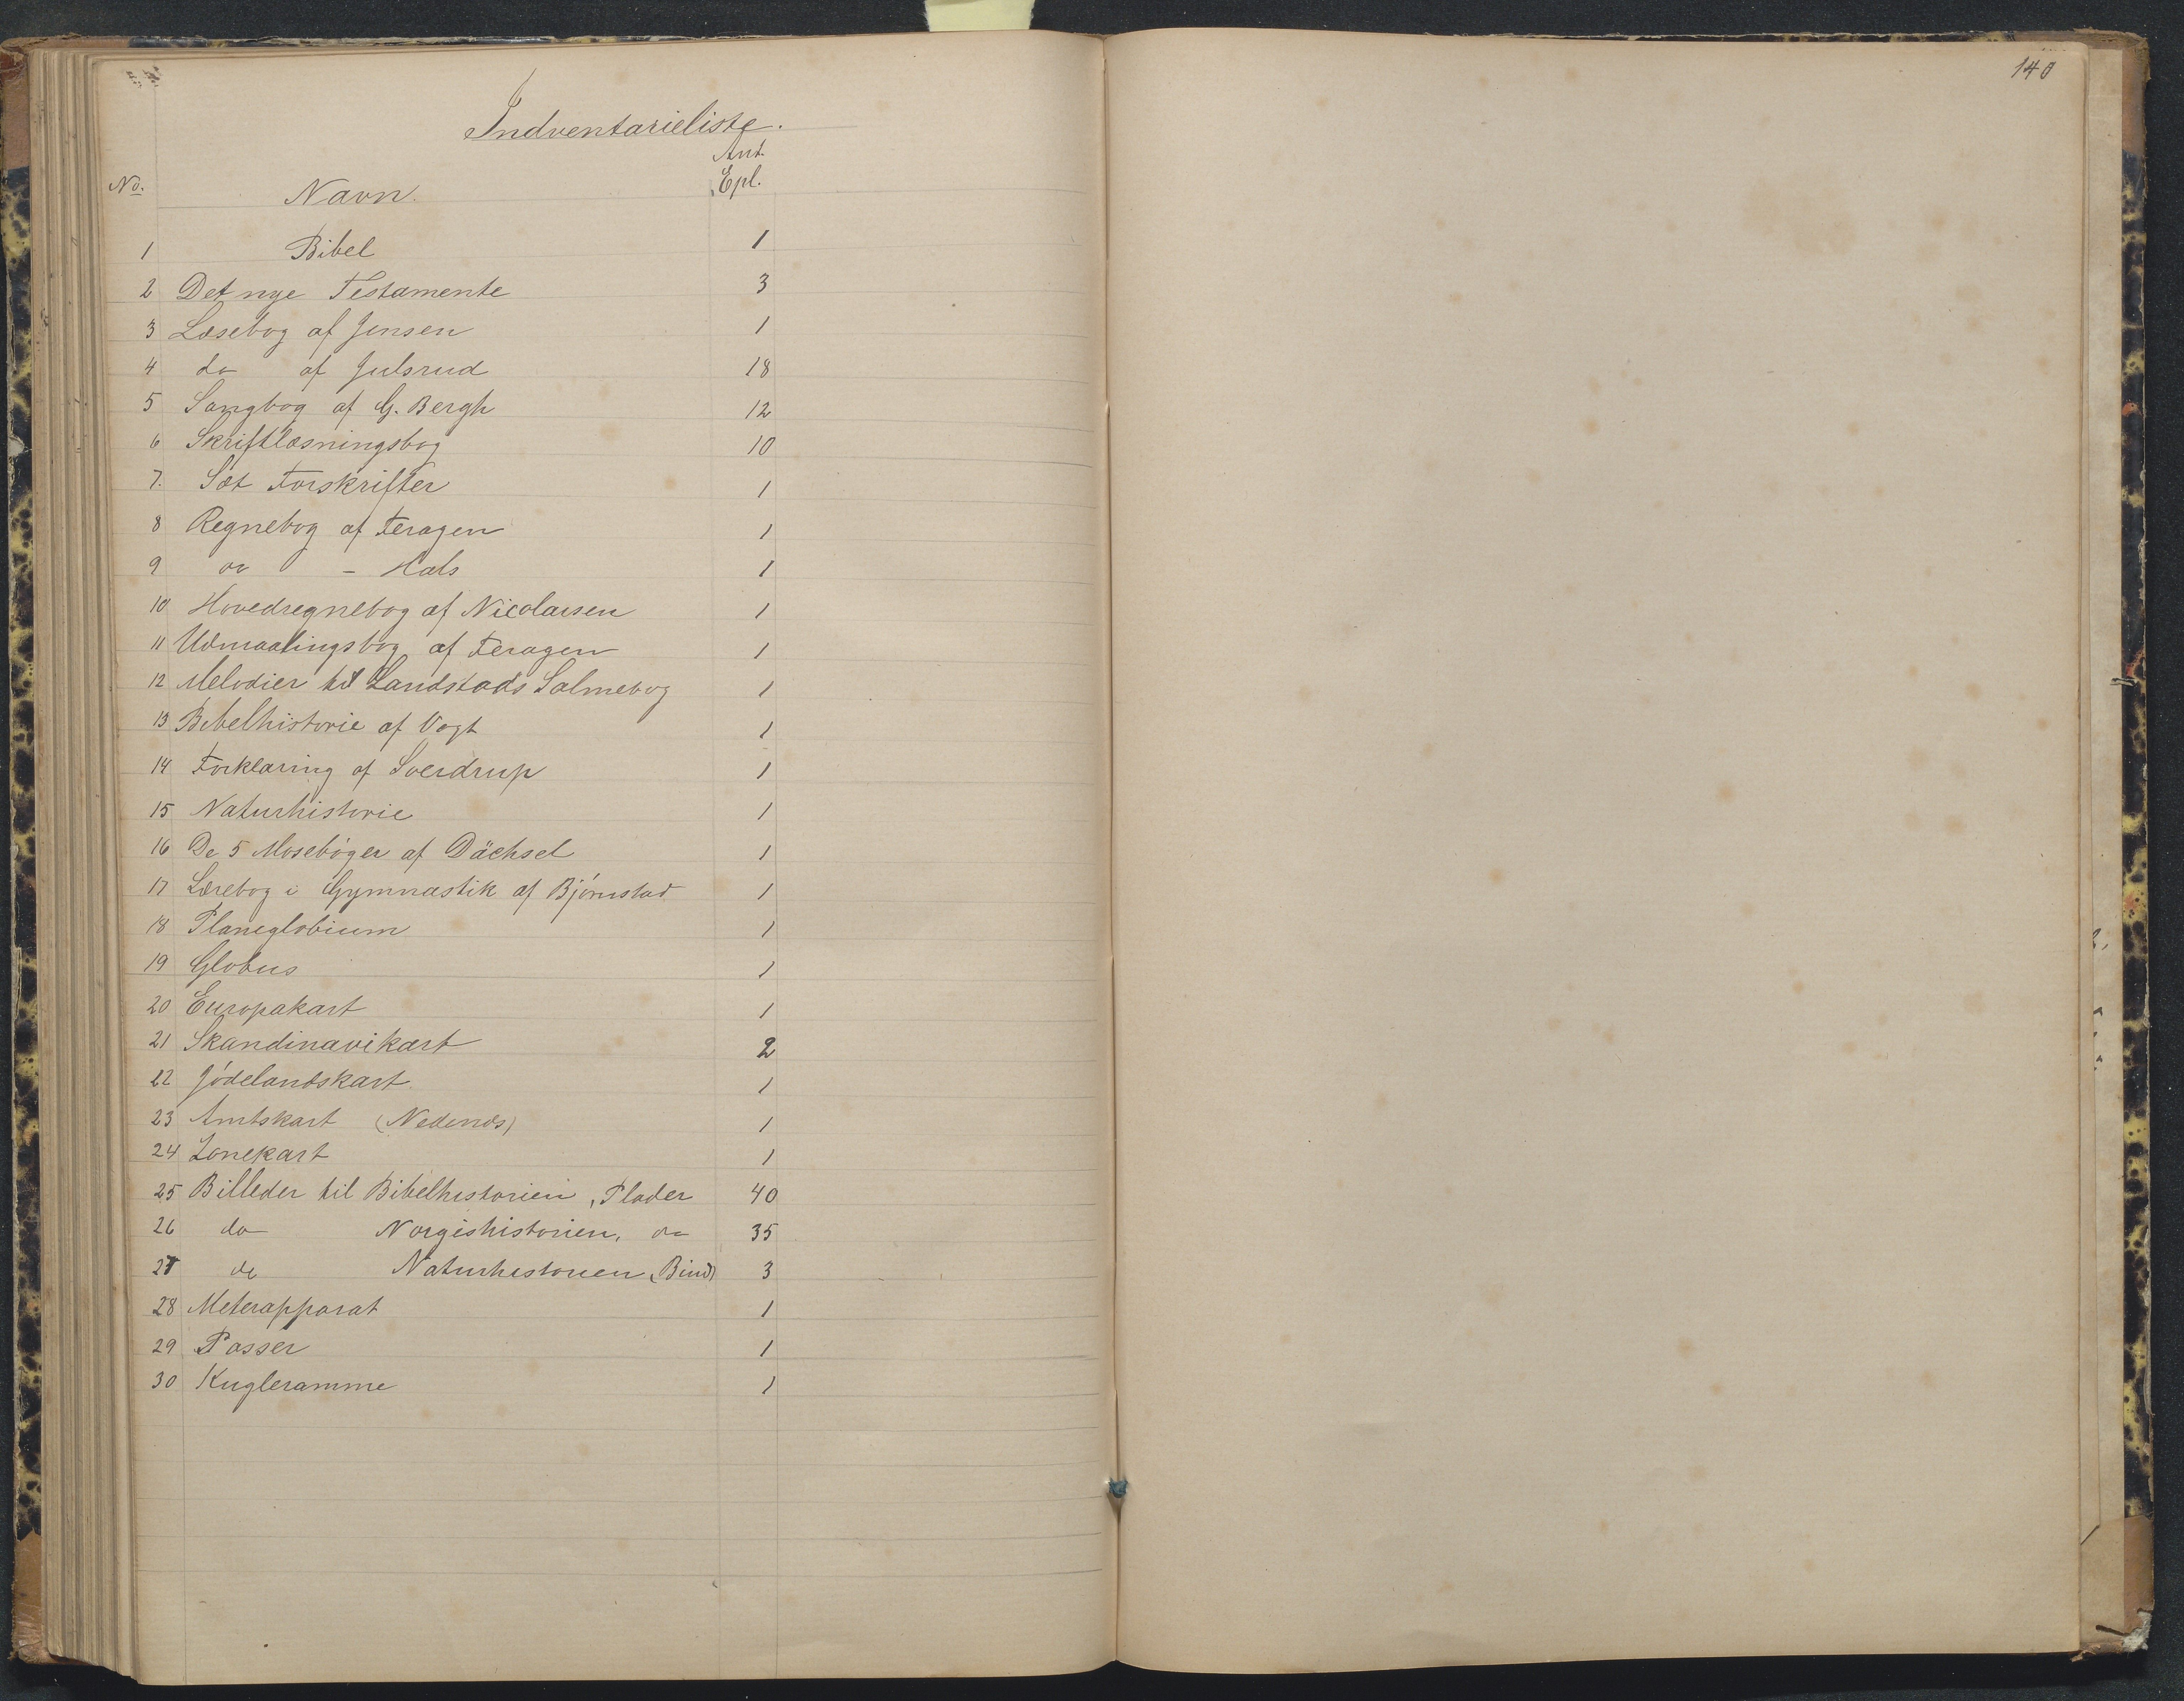 140
Indventarieliste.
Ant.
No. Navn. Epl.
1 Bibel 1
2 Det nye Testamente 3
3 Læsebog af Jensen 1
4 do af Julsrud 18
5 Sangbog af G. Bergh 12
6 Skriftlæsningsbog 10
7. Sæt Forskrifter 1
8 Regnebog af Feragen 1
9 do - Hals 1
10 Hovedregnebog af Nicolaisen 1
11 Udmaalingsbog af Feragen 1
12 Melodier til Landstads Salmebog 1
13 Bibelhistorie af Vogt 1
14 Forklaring af Sverdrup 1
15 Naturhistorie 1
16 De 5 Mosebøger af Dächsel 1
17 Lærebog i Gymnastik af Bjørnstad 1
18 Planiglobium 1
19 Globus 1
20 Europakart 1
21 Skandinavikart 2
22 Jødelandskart 1
23 Amtskart (Nedenæs) 1
24 Zonekart 1
25 Billeder til Bibelhistorien, Plader 40
26 do Norgeshistorien, do 35
27 do Naturhistorien (Bind) 3
28 Meterapparat 1
29 Passer 1
30 Kugleramme 1